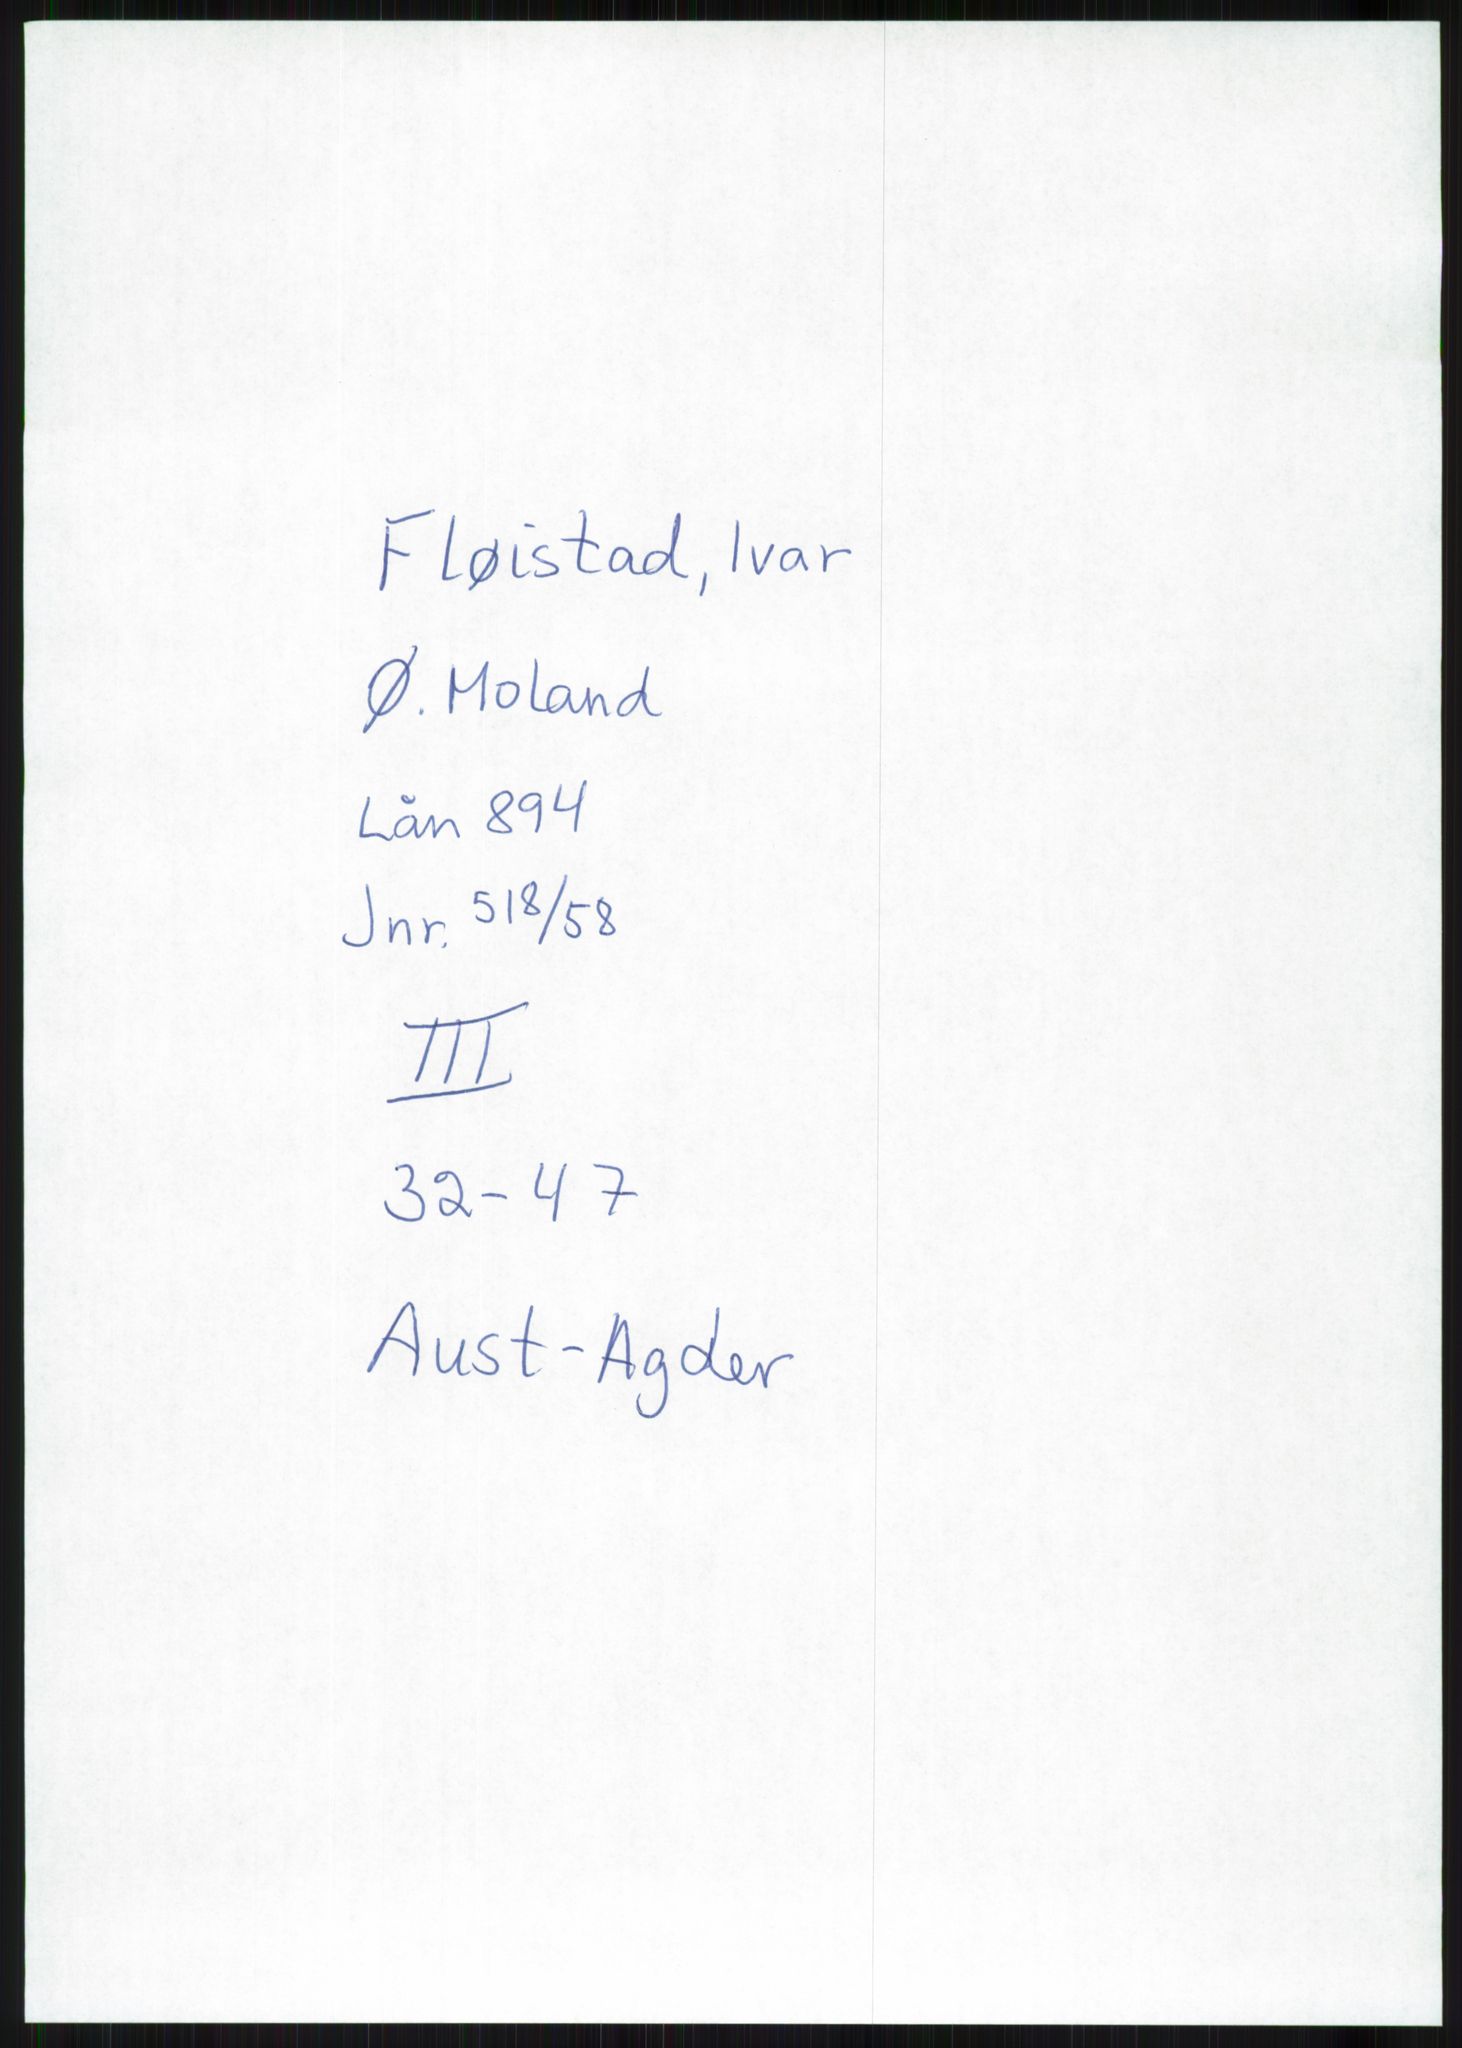 Fløistad, Ivar
Ø. Moland
Lån 894
Jnr. 518/58
III
32-47
Aust-Agder